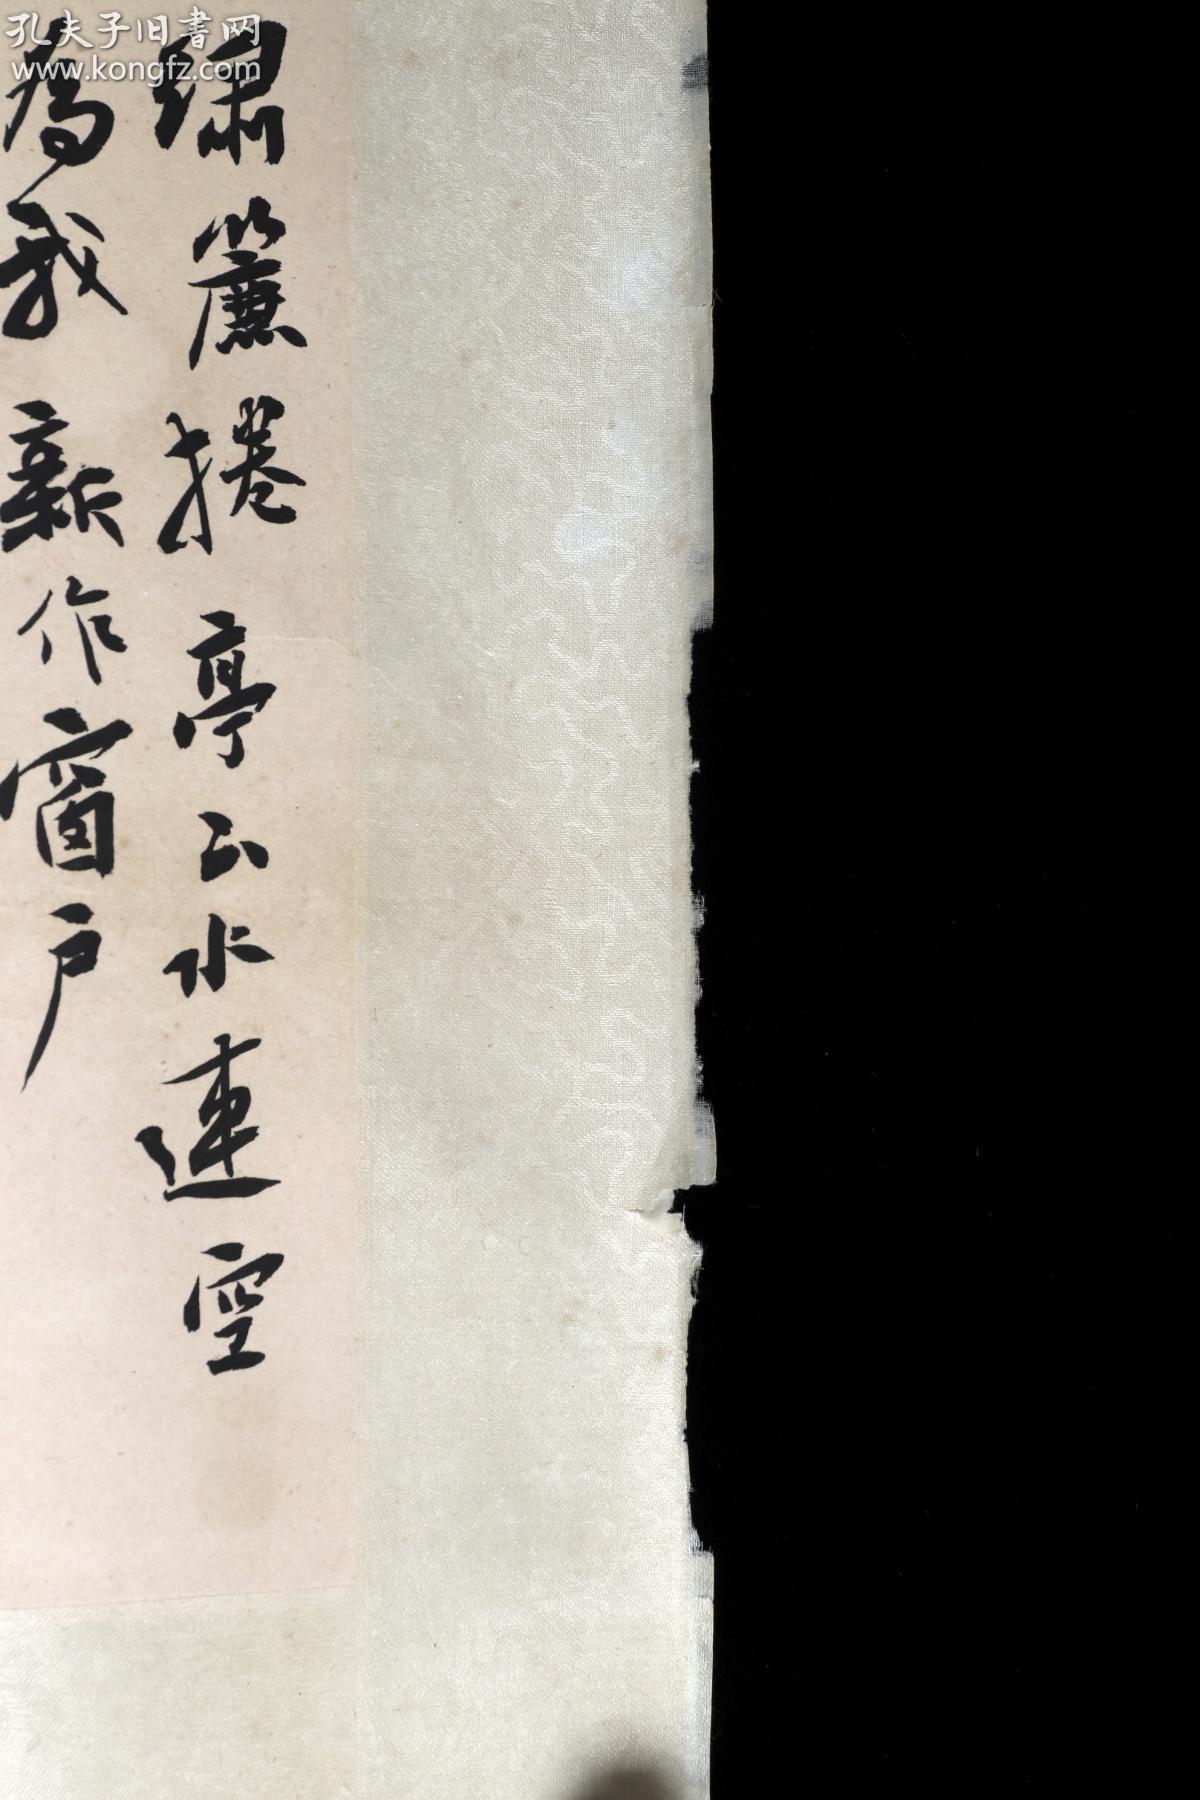 孔夫子旧書网
www.kongfz.com
繡簾捲亭下水連空
為我新作窗戶